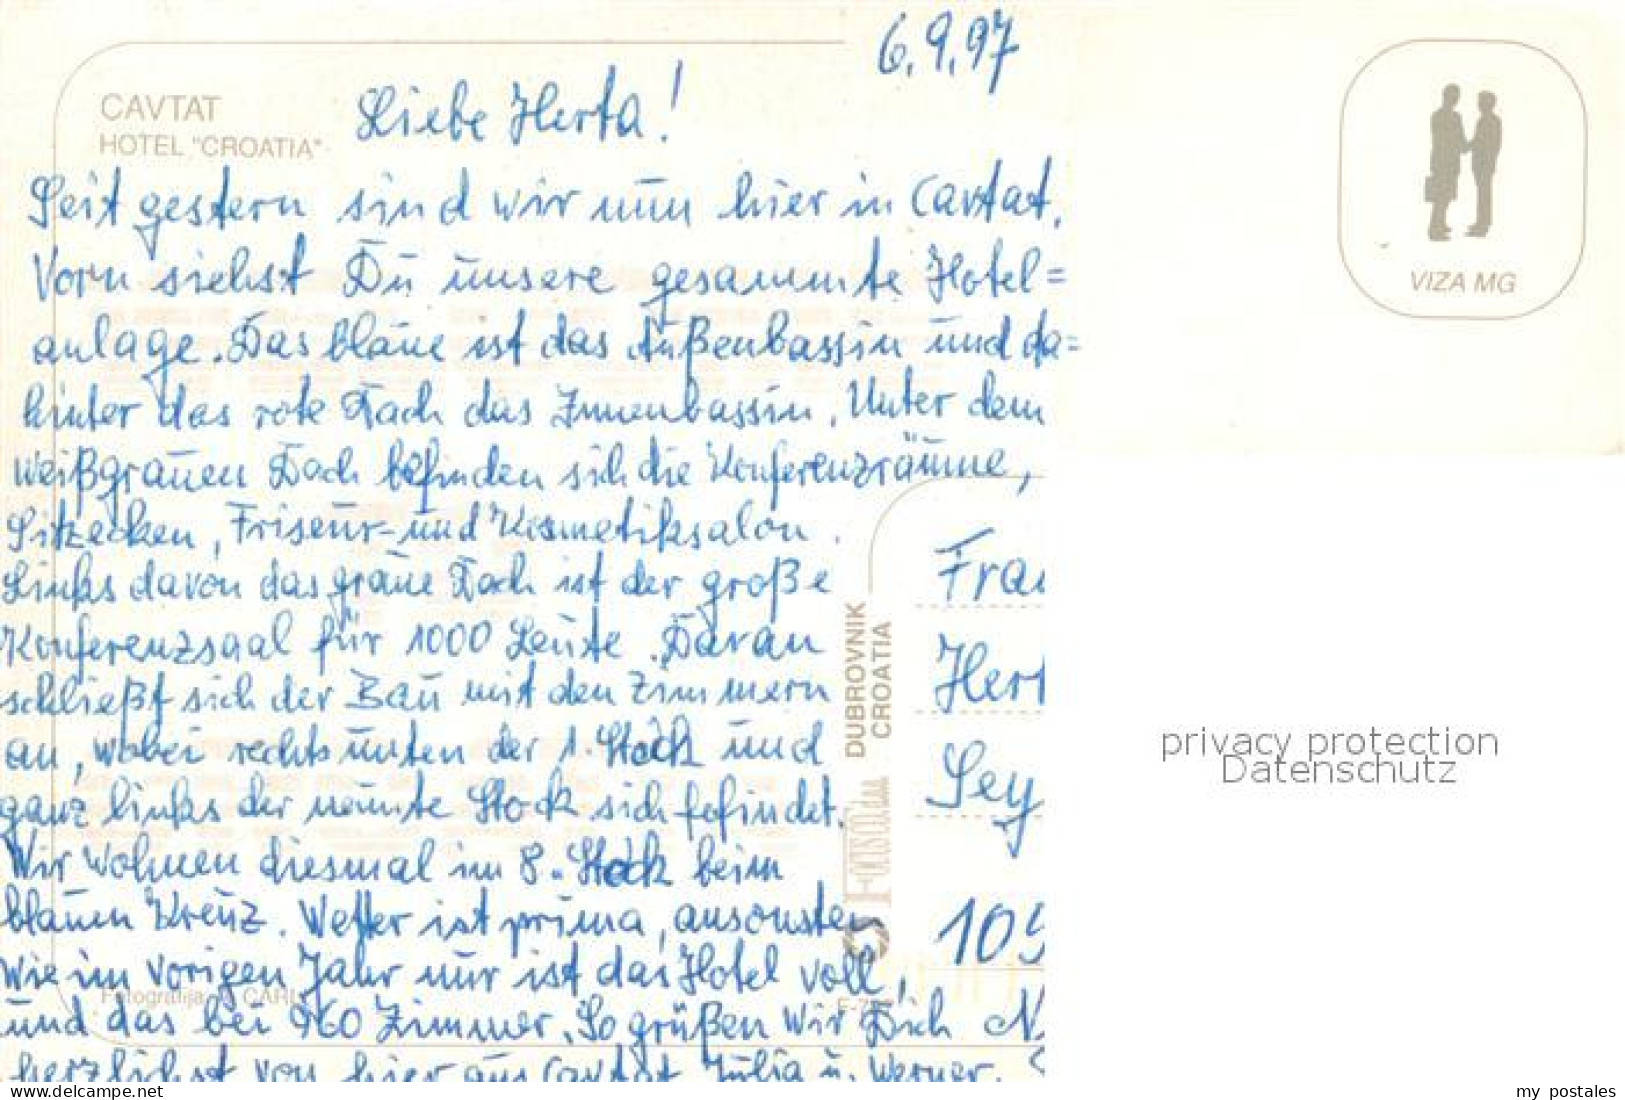 6.9.97
CAVTAT
HOTEL "CROATIA"
Liebe Herta!
Seit gestern sind wir nun hier in Cavtat.
Vorn siehst Du unsere gesammte Hotel=
anlage. Das blaue ist das Außenbassin und da=
hinter das rote Dach das Innenbassin. Unter dem
weißgrauen Dach befinden sich die Konferenzräume,
Sitzecken, Friseur- und Kosmetiksalon.
Links davon das graue Dach ist der große
Konferenzsaal für 1000 Leute. Daran
schließt sich der Bau mit den Zimmern
an, wobei rechts unten der 1. Stock und
ganz links der neunte Stock sich befindet.
Wir wohnen diesmal im 8. Stock beim
blauen Kreuz. Wetter ist prima, ansonsten
wie im vorigen Jahr nur ist das Hotel voll,
und das bei 960 Zimmer. So grüßen wir Dich
herzlichst von hier aus Cavtat Julia u. Werner.
VIZA MG
DUBROVNIK
CROATIA
Fra
Her
Sey
105
Fotografija
privacy protection
Datenschutz
delcampe.net
my_postales